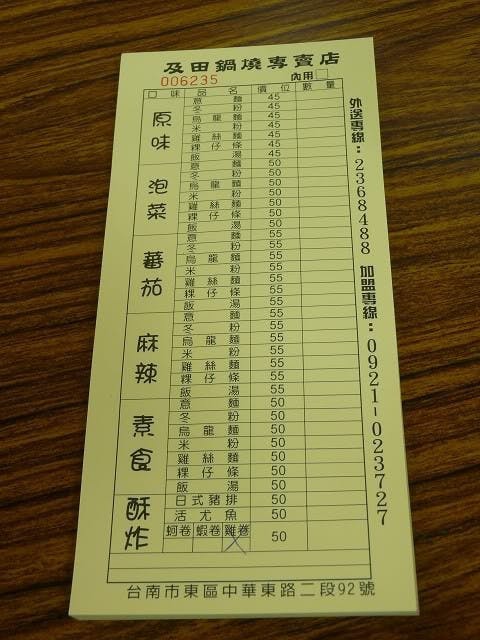 及田鍋燒專賣店
006235 內用
口味 品名 價位 數量
原味
意麵 45
冬粉 45
烏龍麵 45
米粉 45
雞絲麵 45
粿仔條 45
飯湯 45
泡菜
意麵 50
冬粉 50
烏龍麵 50
米粉 50
雞絲麵 50
粿仔條 50
飯湯 50
蕃茄
意麵 55
冬粉 55
烏龍麵 55
米粉 55
雞絲麵 55
粿仔條 55
飯湯 55
麻辣
意麵 55
冬粉 55
烏龍麵 55
米粉 55
雞絲麵 55
粿仔條 55
飯湯 55
素食
意麵 50
冬粉 50
烏龍麵 50
米粉 50
雞絲麵 50
粿仔條 50
飯湯 50
酥炸
日式豬排 50
活尤魚 50
蚵卷 蝦卷 雞卷 50
外送專線：2368488 加盟專線：0921-023727
台南市東區中華東路二段92號